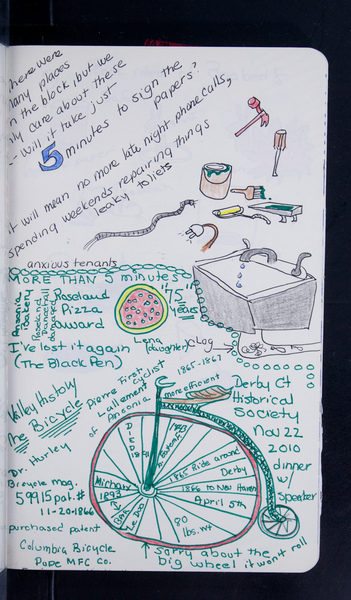 here were
many places
n the block, but we
nly care about these
- will it take just
5 minutes to sign the
papers?
it will mean no more late night phone calls,
spending weekends repairing things
leaky toilets
anxious tenants
MORE THAN 5 minutes
Ansonia
Bakery
Roseland
Pizza
award
"75"
years
Lena
(daughter)
Clog
I've lost it again
(The Black Pen)
Valley History
The Bicycle
Dr. Hurley
Bicycle mag.
59915 pat. #
11-20-1866
purchased patent
Columbia Bicycle
Pope MFC Co.
First
Cyclist
Pierre Lallement
of Ansonia
1867-1867
more efficient
Derby Ct
Historical
Society
Nov 22
2010
dinner
w/
speaker
DIED
1891
1843
1865 Ride around
Derby
1866 to New Haven
April 5th
80
lbs. wt
1893
↑ sorry about the
big wheel it won't roll